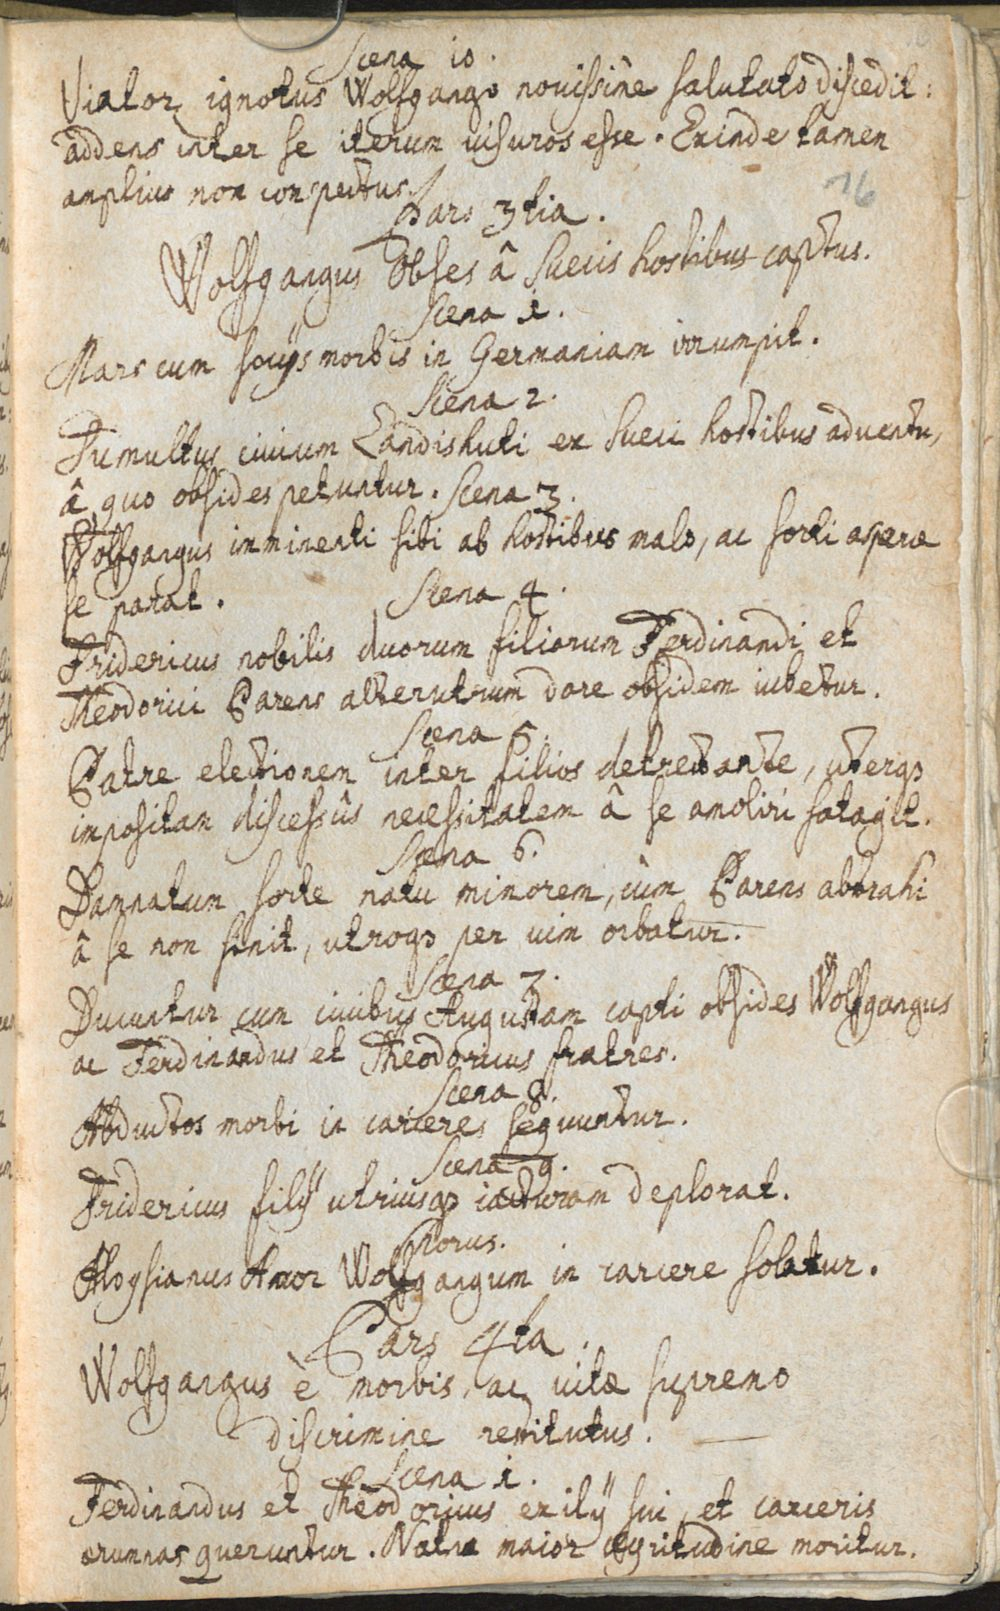 Scena 10.
Viator ignotus Wolfgango novissinè salutato discedit:
addens inter se iterum visuros esse. Exinde tamen
amplius non conspectus.
76
Pars 3tia.
Wolfgangus Obses â Suecis hostibus captus.
Scena 1.
Mars cum socijs morbis in Germaniam irrumpit.
Scena 2.
Tumultus civium Landishuti ex Sueci hostibus adventu,
â quo obsides petuntur. Scena 3.
Wolfgangus imminenti sibi ab hostibus malo, ac sorti asperæ
se parat. Scena 4.
Fridericus nobilis duorum filiorum Ferdinandi et
Theodorici Parens alterutrum dare obsidem iubetur.
Scena 5.
Patre electionem inter filios detrectante, uterqȝ
impositam discessûs necessitatem â se amoliri satagit.
Scena 6.
Damnatum sorte natu minorem, cùm Parens abtrahi
â se non sinit, utroqȝ per vim orbatur.
Scena 7.
Ducuntur cum civibus Augustam capti obsides Wolfgangus
ac Ferdinandus et Theodoricus fratres.
Scena 8.
Abductos morbi in carceres sequuntur.
Scena 9.
Fridericus filij utriusqȝ iacturam deplorat.
Chorus.
Aloysianus Amor Wolfgangum in carcere solatur.
Pars 4ta.
Wolfgangus è morbis, ac vitæ supremo
discrimine restitutus.
Scena 1.
Ferdinandus et Theodoricus exilij sui, et carceris
ærumnas queruntur. Natu maior ægritudine moritur.